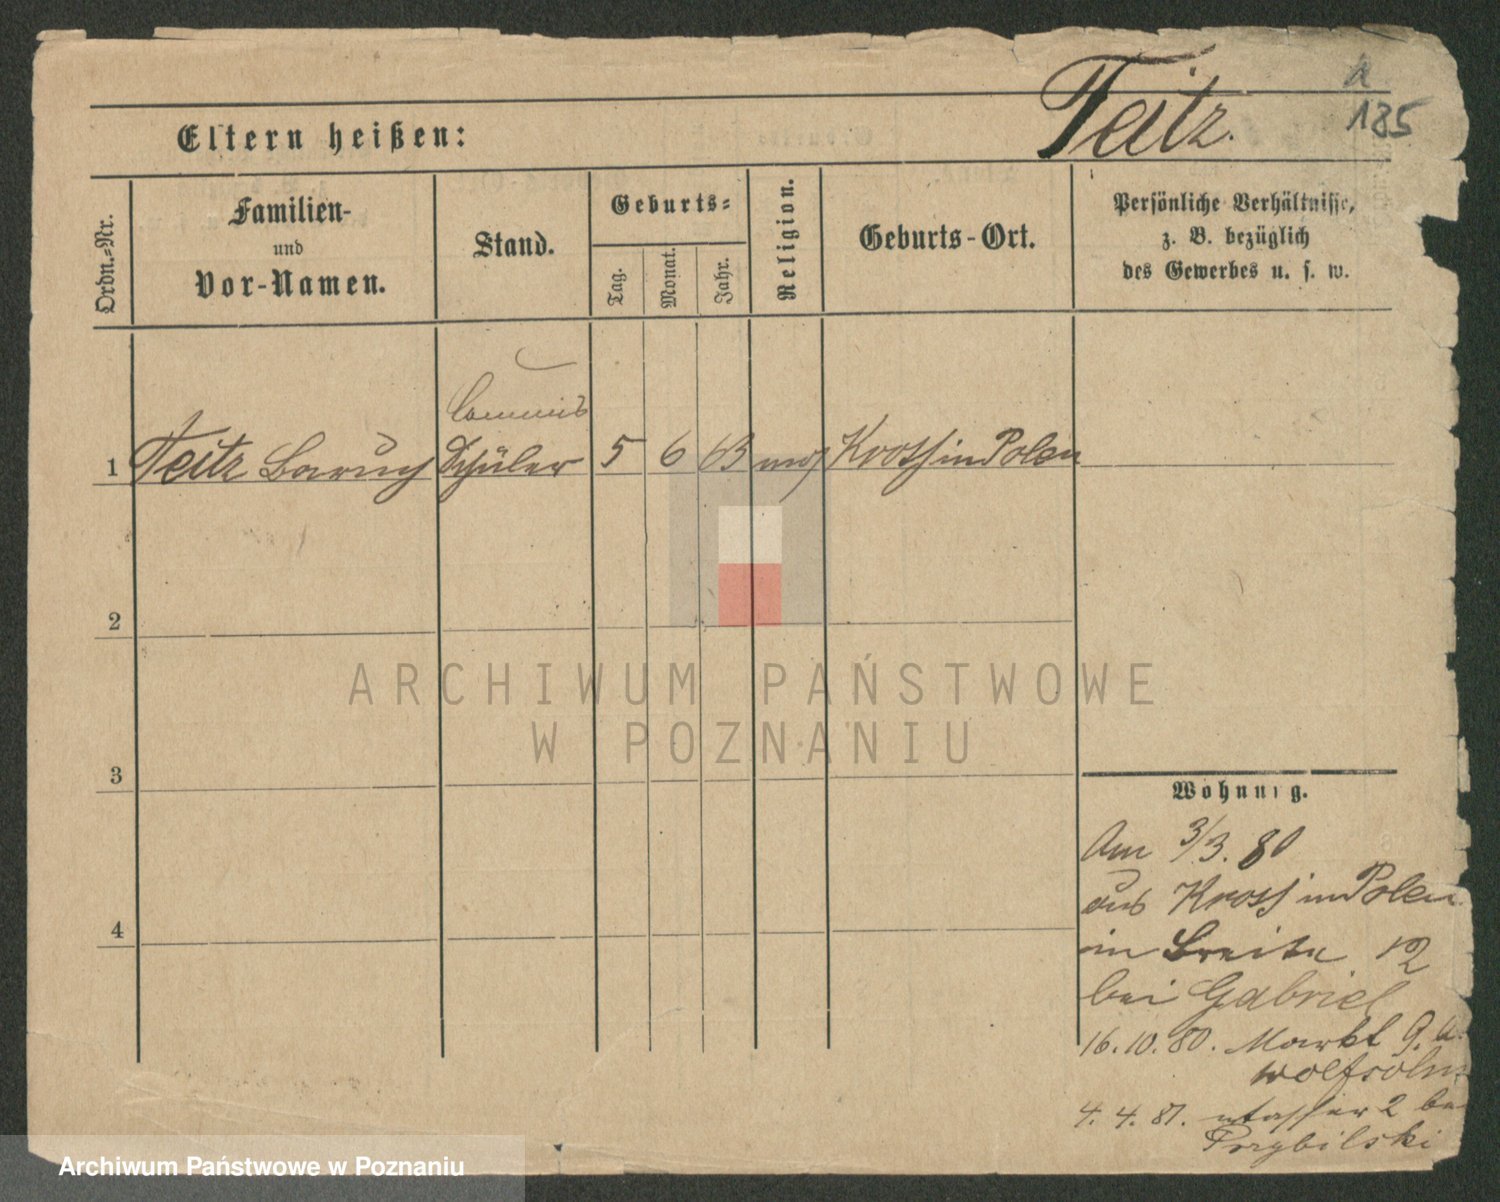 Teitz.
a
185
Eltern heißen:
Ordn.-Nr.
Familien-
und
Vor-Namen.
Stand.
Geburts-
Tag.
Monat.
Jahr.
Religion.
Geburts-Ort.
Persönliche Verhältnisse,
z. B. bezüglich
des Gewerbes u. s. w.
Commis
1 Teitz Baruch Schüler 5 6 63 mos Kross in Polen
2
3
4
ARCHIWUM PAŃSTWOWE
W POZNANIU
Wohnung.
Am 3/3. 80
aus Kross in Polen
in Breite 12
bei Gabriel
16.10.80. Markt 9.
Wolfsohn
4. 4. 81. 2 be
Przybilski
Archiwum Państwowe w Poznaniu